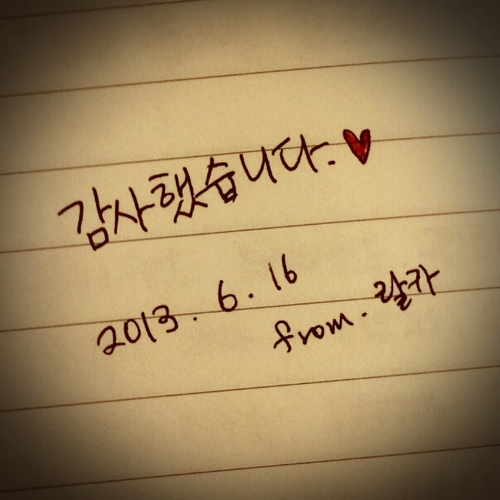 감사했습니다. ♥
2013. 6. 16
from. 랄카